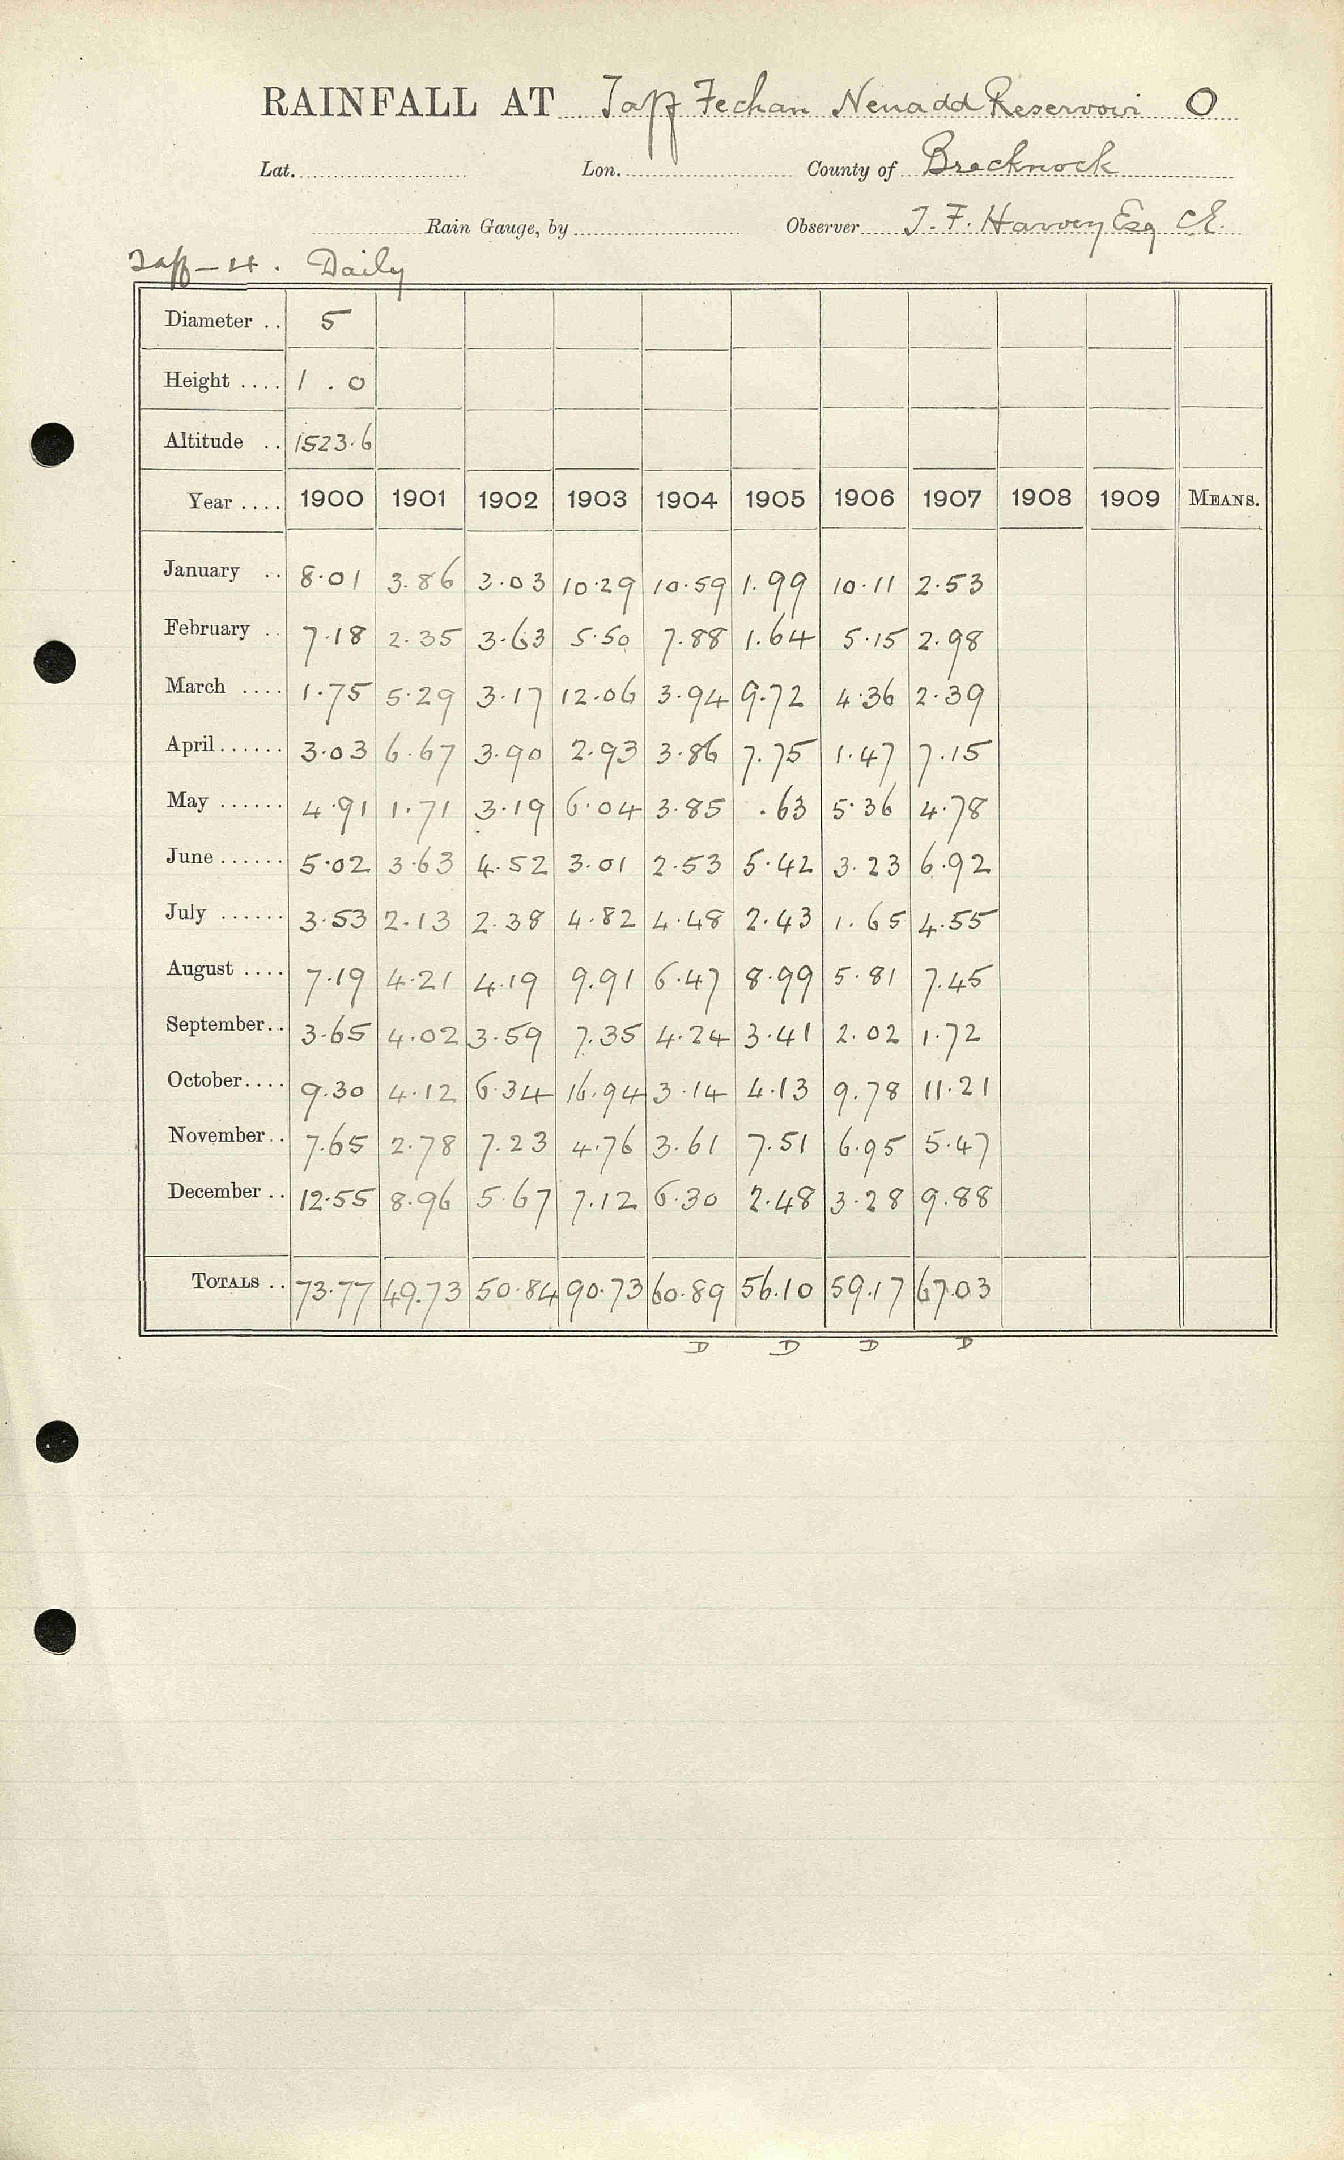 RAINFALL AT Taff Fechan Neuadd Reservoir O
Lat. Lon. County of Brecknock
Rain Gauge, by Observer T. F. Harvey Esq CE.
Taff - 4. Daily
Diameter .. 5
Height .... 1 . 0
Altitude .. 1523.6
Year .... 1900 1901 1902 1903 1904 1905 1906 1907 1908 1909 MEANS.
January .. 8.01 3.86 3.03 10.29 10.59 1.99 10.11 2.53
February .. 7.18 2.35 3.63 5.50 7.88 1.64 5.15 2.98
March .... 1.75 5.29 3.17 12.06 3.94 9.72 4.36 2.39
April ...... 3.03 6.67 3.90 2.93 3.86 7.75 1.47 7.15
May ...... 4.91 1.71 3.19 6.04 3.85 .63 5.36 4.78
June ...... 5.02 3.63 4.52 3.01 2.53 5.42 3.23 6.92
July ...... 3.53 2.13 2.38 4.82 4.48 2.43 1.65 4.55
August .... 7.19 4.21 4.19 9.91 6.47 8.99 5.81 7.45
September .. 3.65 4.02 3.59 7.35 4.24 3.41 2.02 1.72
October .... 9.30 4.12 6.34 16.94 3.14 4.13 9.78 11.21
November .. 7.65 2.78 7.23 4.76 3.61 7.51 6.95 5.47
December .. 12.55 8.96 5.67 7.12 6.30 2.48 3.28 9.88
TOTALS .. 73.77 49.73 50.84 90.73 60.89 56.10 59.17 67.03
D D D D